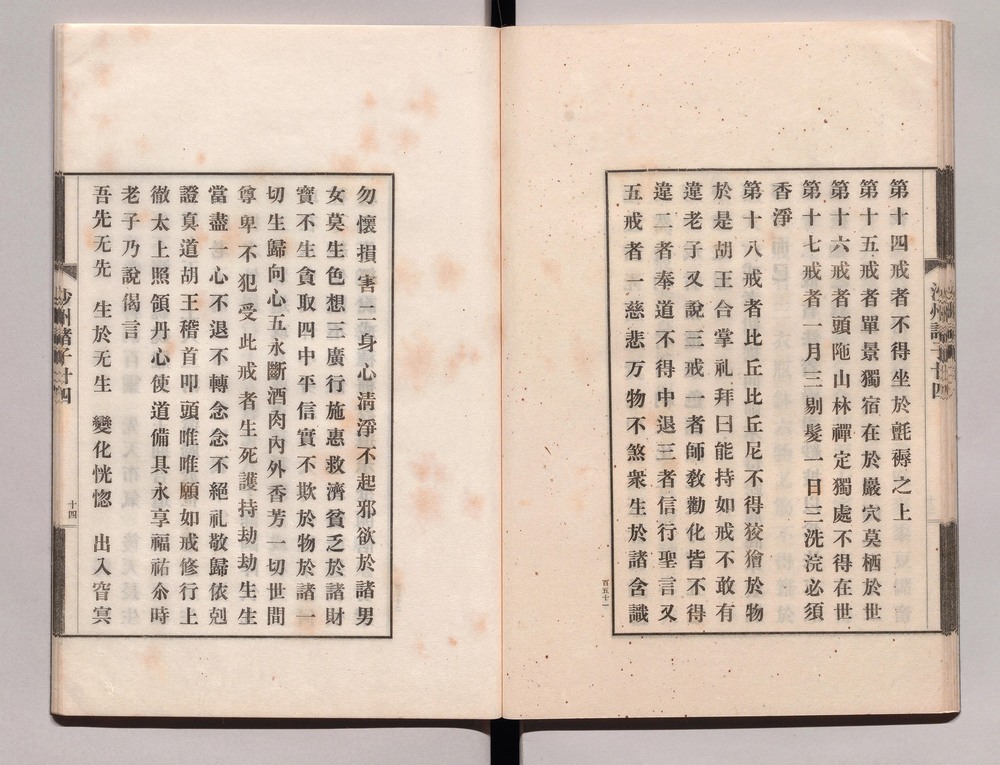 第十四戒者不得坐於氈褥之上
第十五戒者單景獨宿在於巖穴莫栖於世
第十六戒者頭陁山林禪定獨處不得在世
第十七戒者一月三剔髮一日三洗浣必須
香淨
第十八戒者比丘比丘尼不得狡獪於物
於是胡王合掌礼拜曰能持如戒不敢有
違老子又說三戒一者師敎勸化皆不得
違二者奉道不得中退三者信行聖言又
五戒者一慈悲万物不煞衆生於諸含識
百五十一
勿懷損害二身心淸淨不起邪欲於諸男
女莫生色想三廣行施惠救濟貧乏於諸財
寳不生貪取四中平信實不欺於物於諸一
切生歸向心五永斷酒肉內外香芳一切世間
尊卑不犯受此戒者生死護持劫劫生生
當盡心不退不轉念念不絕礼敬歸依剋
證真道胡王稽首叩頭唯唯願如戒修行上
徹太上照領丹心使道備具永享福祐尒時
老子乃說偈言
吾先无先　生於无生　變化恍惚　出入窅冥
沙州諸子廿四
十四